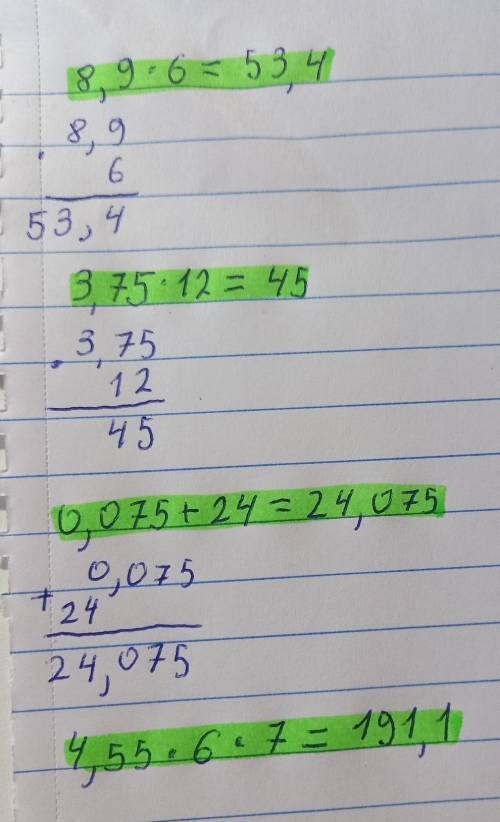 8,9·6=53,4
· 8,9
6
53,4
3,75·12=45
· 3,75
12
45
0,075+24=24,075
+ 0,075
24
24,075
4,55·6·7=191,1